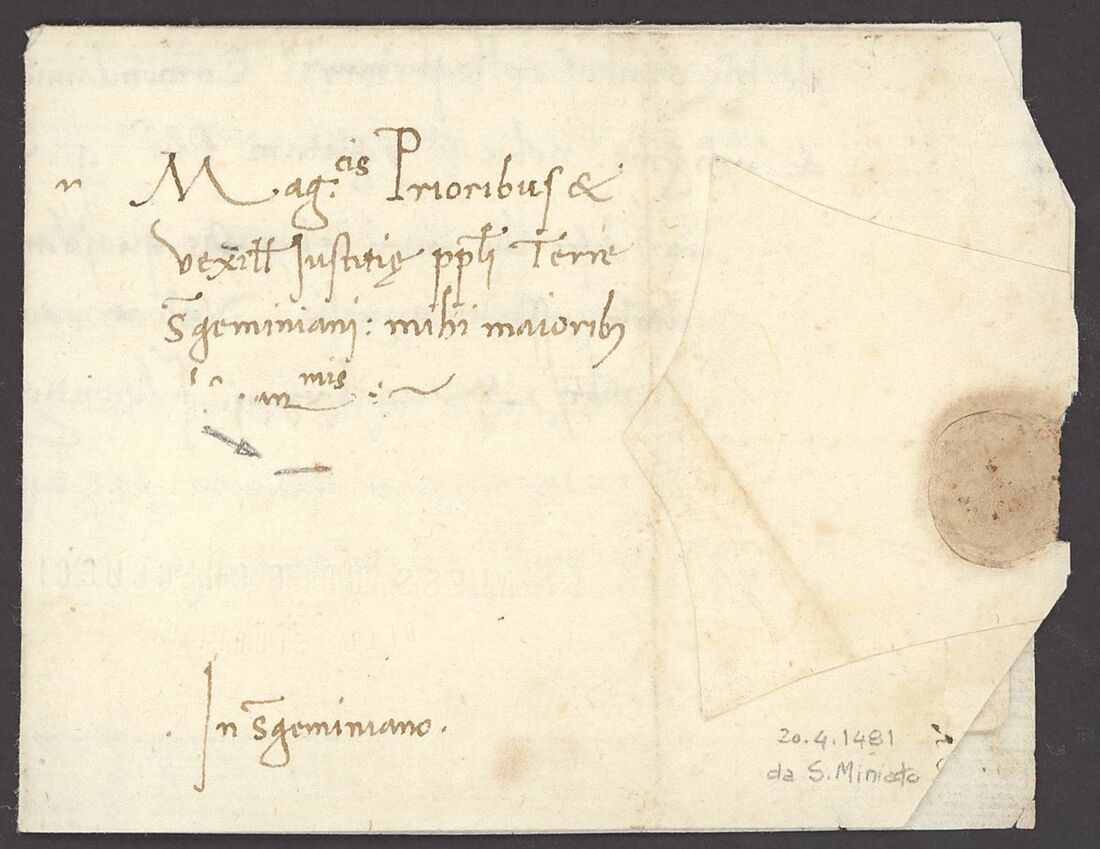 Mag:cis Prioribus &
vexill Justitię ppli Terre
Sgeminiani: mihi maioribȝ
In Sgeminiano.
20.4.1481
da S. Miniato